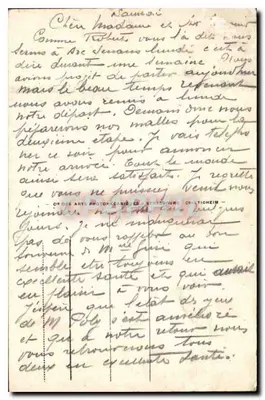 Samedi
Chère Madame et
Comme Robert vous l'a dit nous
serons à Arc Senans lundi c'est à
dire durant une semaine. Nous
avions projet de partir aujourd'hui
mais le beau temps revenant
nous avons remis à lundi
notre départ. Demain donc nous
préparerons nos malles pour la
deuxième étape. Je vais télépho
ner ce soir pour annoncer
notre arrivée. Tout le monde
ainsi sera satisfait. Je regrette
que vous ne puissiez venir nous
rejoindre quelques
jours. Je ne manquerai
pas de vous rappeler au bon
souvenir de Mme qui
semble être tout
excellente santé et qui aurait
eu plaisir à vous voir
J'espère que l'état des yeux
de M. s'est amélioré
et que à notre retour nous
vous retrouverons tous
deux en excellente santé.